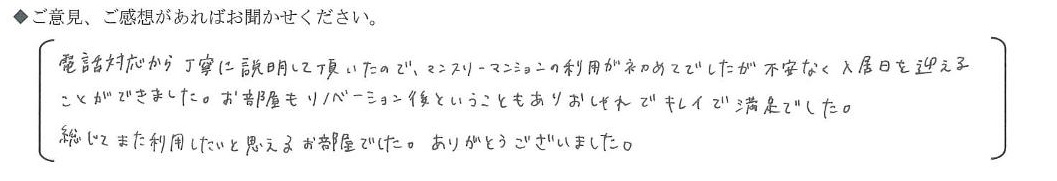 ◆ご意見、ご感想があればお聞かせください。
電話対応から丁寧に説明して頂いたので、マンスリーマンションの利用が初めてでしたが不安なく入居日を迎える
ことができました。お部屋もリノベーション後ということもありおしゃれでキレイで満足でした。
総じてまた利用したいと思えるお部屋でした。ありがとうございました。